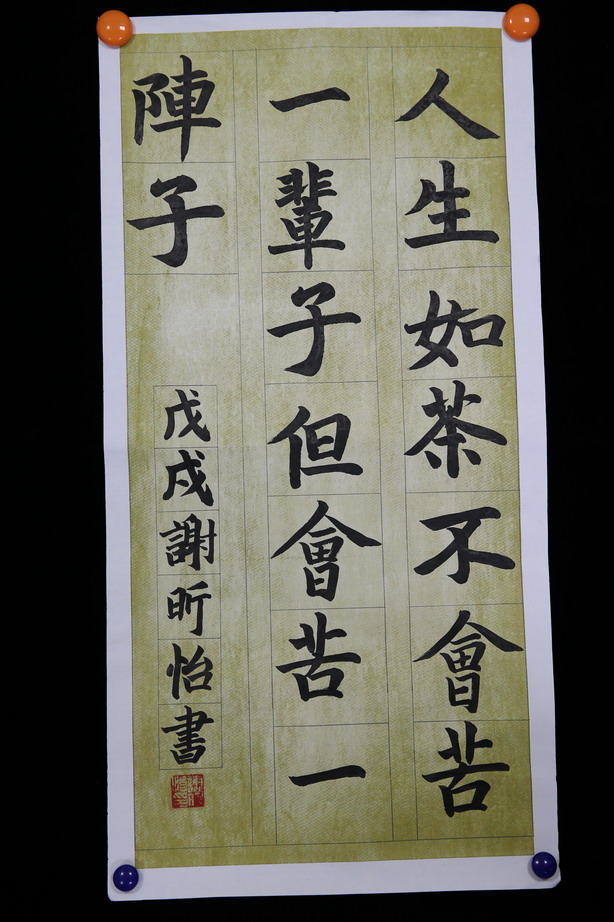 人生如茶不會苦
一輩子但會苦一
陣子
戊戌謝昕怡書